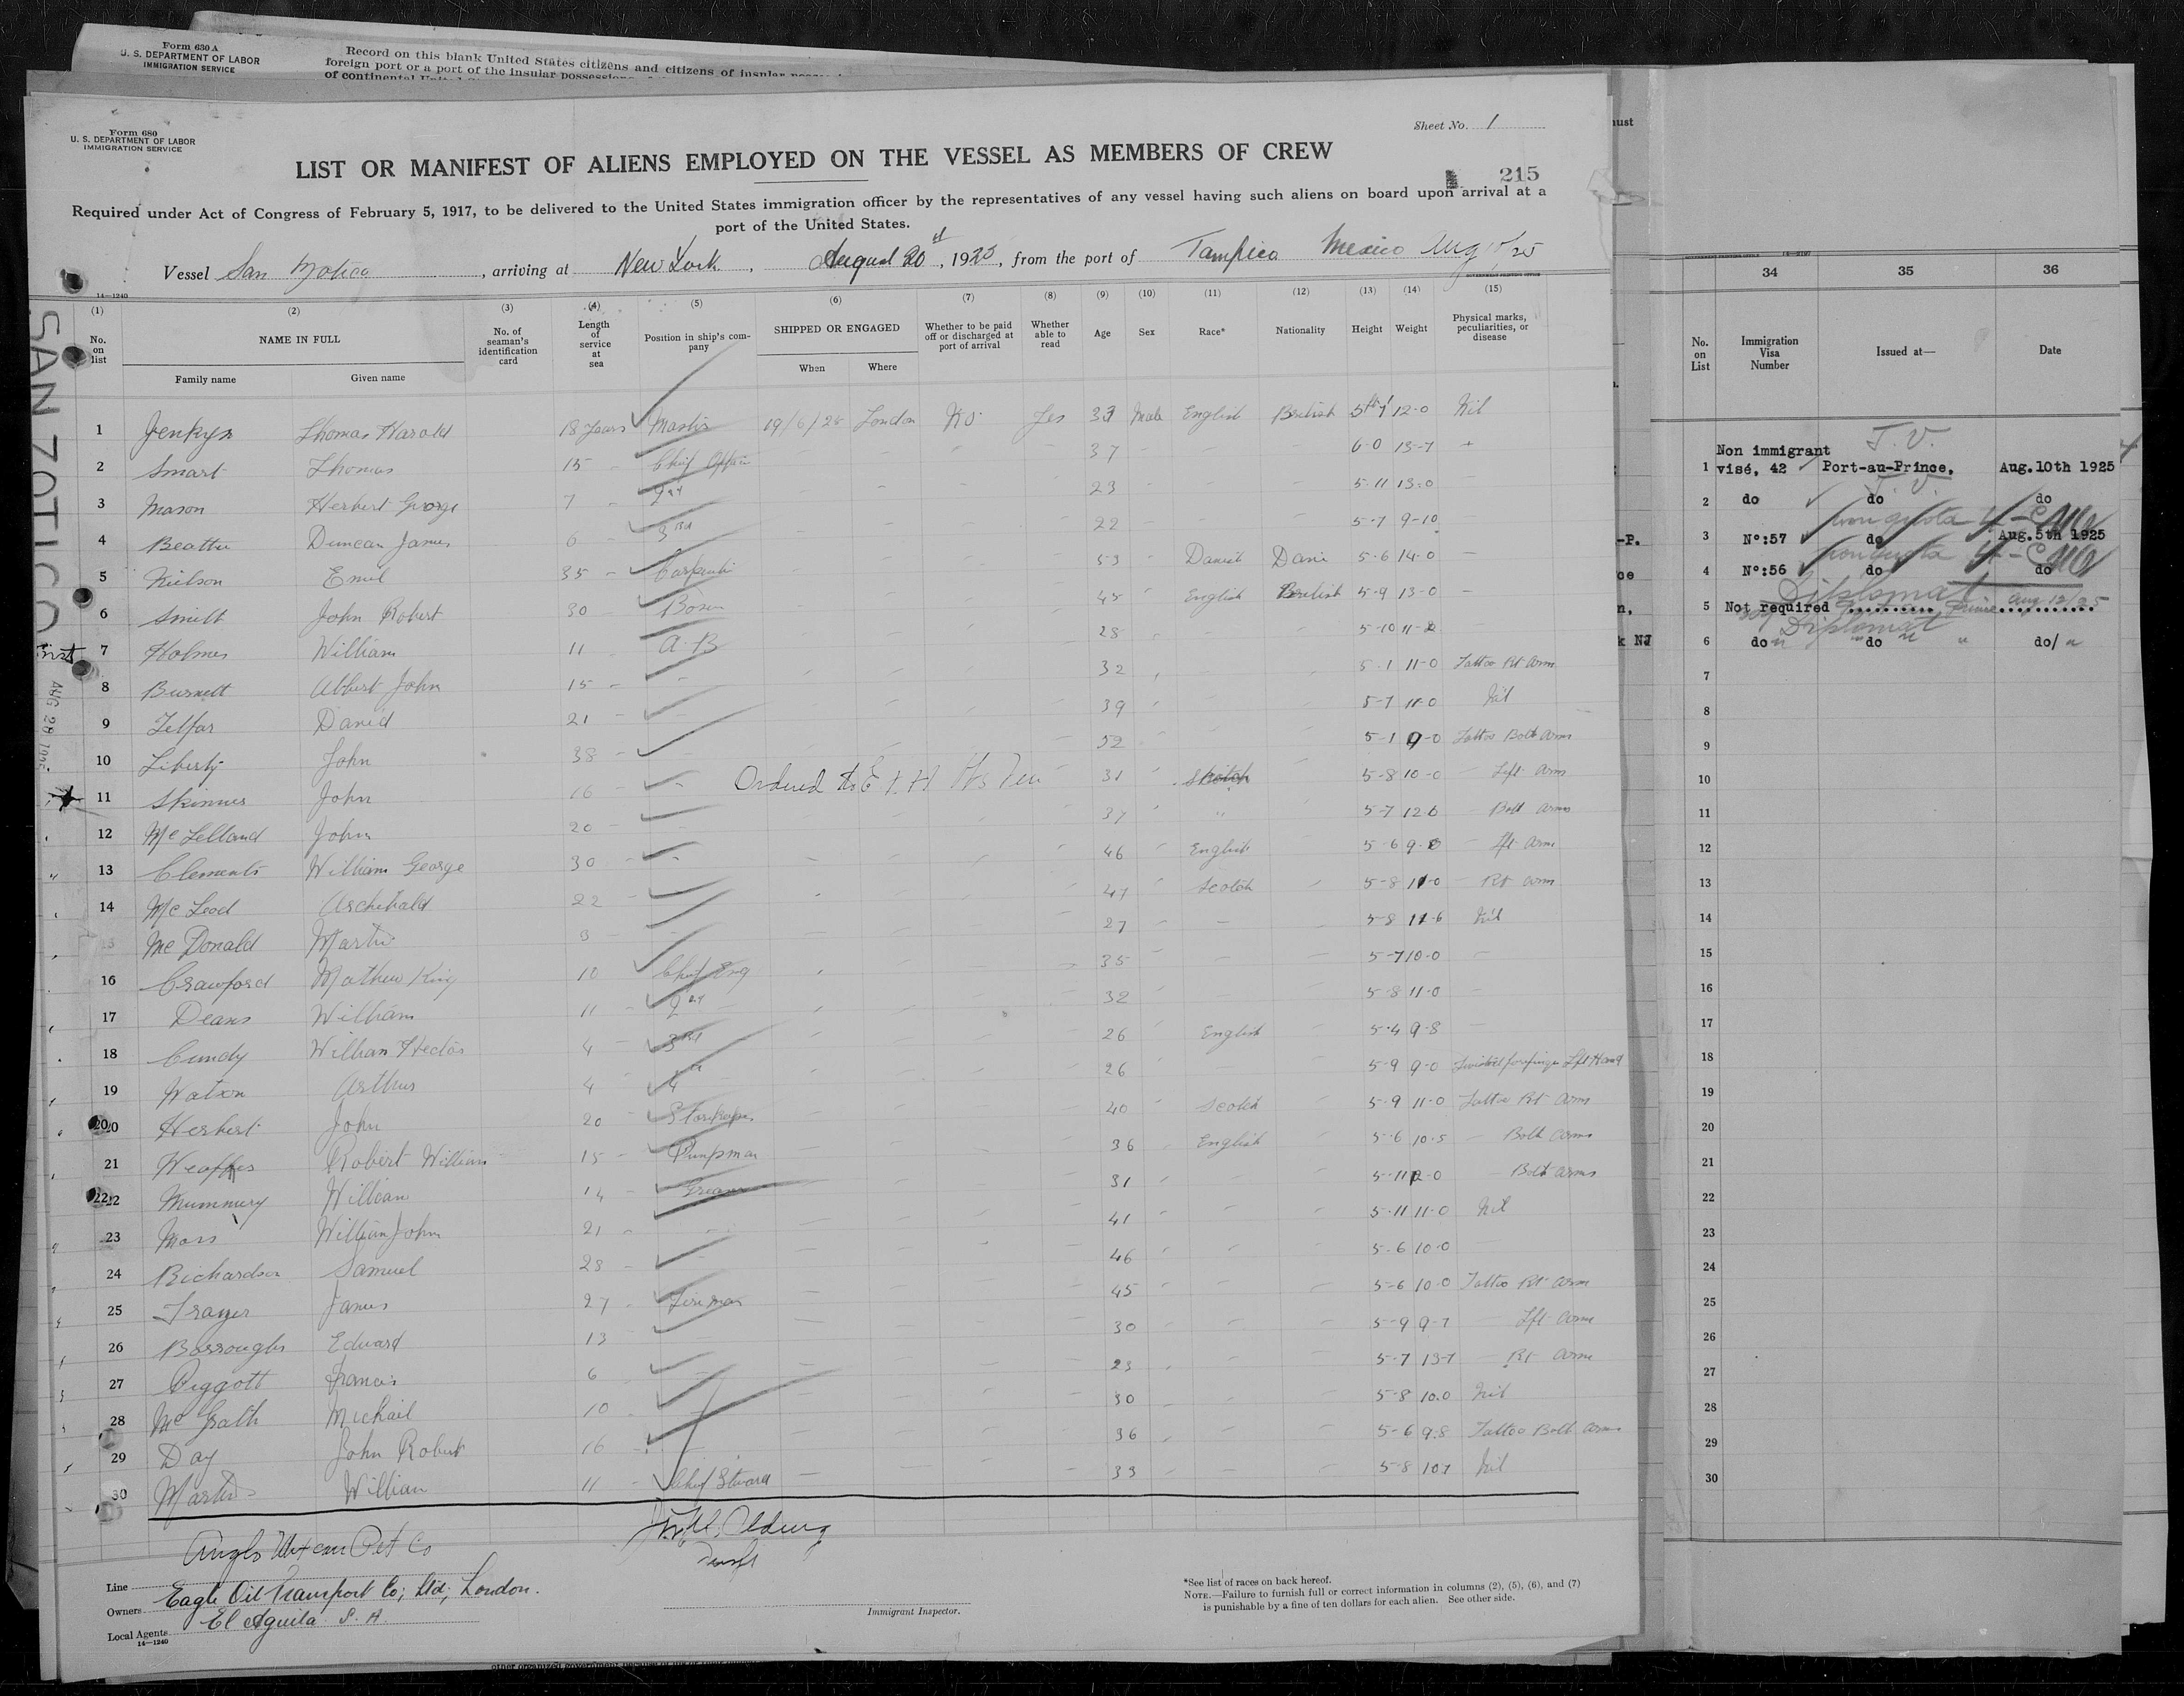 Form 630 A
U. S. DEPARTMENT OF LABOR
IMMIGRATION SERVICE
Record on this blank United States citizens and citizens of insular
foreign port or a port of the insular possessions
of continental
Form 680
U. S. DEPARTMENT OF LABOR
IMMIGRATION SERVICE
Sheet No. 1
LIST OR MANIFEST OF ALIENS EMPLOYED ON THE VESSEL AS MEMBERS OF CREW
215
Required under Act of Congress of February 5, 1917, to be delivered to the United States immigration officer by the representatives of any vessel having such aliens on board upon arrival at a
port of the United States.
Vessel San Zotico, arriving at New York, August 20, 1925, from the port of Tampico Mexico Aug /25
14—1240
(1) (2) (3) (4) (5) (6) (7) (8) (9) (10) (11) (12) (13) (14) (15)
No. on list NAME IN FULL No. of seaman's identification card Length of service at sea Position in ship's company SHIPPED OR ENGAGED Whether to be paid off or discharged at port of arrival Whether able to read Age Sex Race* Nationality Height Weight Physical marks, peculiarities, or disease
Family name Given name When Where
1 Jenkyn Thomas Harold 18 Years Master London No Yes Male English British 12-0 Nil
2 Smart Thomas 15 Chief Officer 37 6-0 13-7
3 Mason Herbert George 7 2nd 23 5-11 13-0
4 Beattie Duncan James 6 3rd 22 5-7 9-10
5 Emil 35 Carpenter 53 Danish Dane 5-6 14-0
6 Smith John Robert 30 Bosun 45 English British 5-9 13-0
7 Holmes William 11 A-B 28 5-10
8 Burnett Albert John 15 32 5-1 11-0 Tattoo Rt Arm
9 Telfar David 21 39 5-7 11-0 Nil
10 Liberty John 38 52 5-1 9-0 Tattoo Both Arms
11 Skinner John 16 Ordered to 31 Scotch 5-8 10-0 Left Arm
12 McLelland John 20 37 " 5-7 12-6 Both Arms
13 Clements William George 30 46 English 5-6 Lft Arm
14 McLeod Archibald 22 47 Scotch 5-8 11-0 Rt Arm
15 McDonald Martin 27 5-8 11-6 Nil
16 Crawford Mathew King 10 Chief Eng 35 5-7 10-0
17 Deans William 11 2nd 32 5-8 11-0
18 Cundy William Hector 4 3rd 26 English 5-4 9-8
19 Watson Arthur 4 4th 26 5-9 9-0 forefinger Lft Hand
20 Herbert John 20 Storekeeper 40 Scotch 5-9 11-0 Tattoo Rt Arm
21 Robert William 15 Pumpman 36 English 5-6 10-5 Both Arms
22 Mummery William 14 Greaser 31 5-11 12-0 Both Arms
23 William John 21 41 5-11 11-0 Nil
24 Richardson Samuel 46 5-6 10-0
25 James 27 Fireman 45 5-6 10-0 Tattoo Rt Arm
26 Burroughs Edward 13 30 5-9 9-7 Lft Arm
27 Piggott Francis 6 23 5-7 13-7 Rt Arm
28 McGrath Michail 10 30 5-8 10.0 Nil
29 Day John Robert 16 36 5-6 9.8 Tattoo Both Arms
30 William 11 Chief Steward 33 5-8 Nil
SAN ZOTICO
AUG 28 1925
Anglo Mexican Pet Co
Line
Owners Eagle Oil Transport Co; Ltd; London.
Local Agents El Aguila S. A.
14—1240
Immigrant Inspector.
*See list of races on back hereof.
NOTE.—Failure to furnish full or correct information in columns (2), (5), (6), and (7)
is punishable by a fine of ten dollars for each alien. See other side.
34 35 36
No. on List Immigration Visa Number Issued at— Date
T. V.
1 Non immigrant visé, 42 Port-au-Prince, Aug.10th 1925
2 do do do
3 Nº:57 do Aug.5th 1925
4 Nº:56 do
Diplomat
5 Not required .......... Prince Aug 12/25
Diplomat
6 do " do " " do/ "
7
8
9
10
11
12
13
14
15
16
17
18
19
20
21
22
23
24
25
26
27
28
29
30